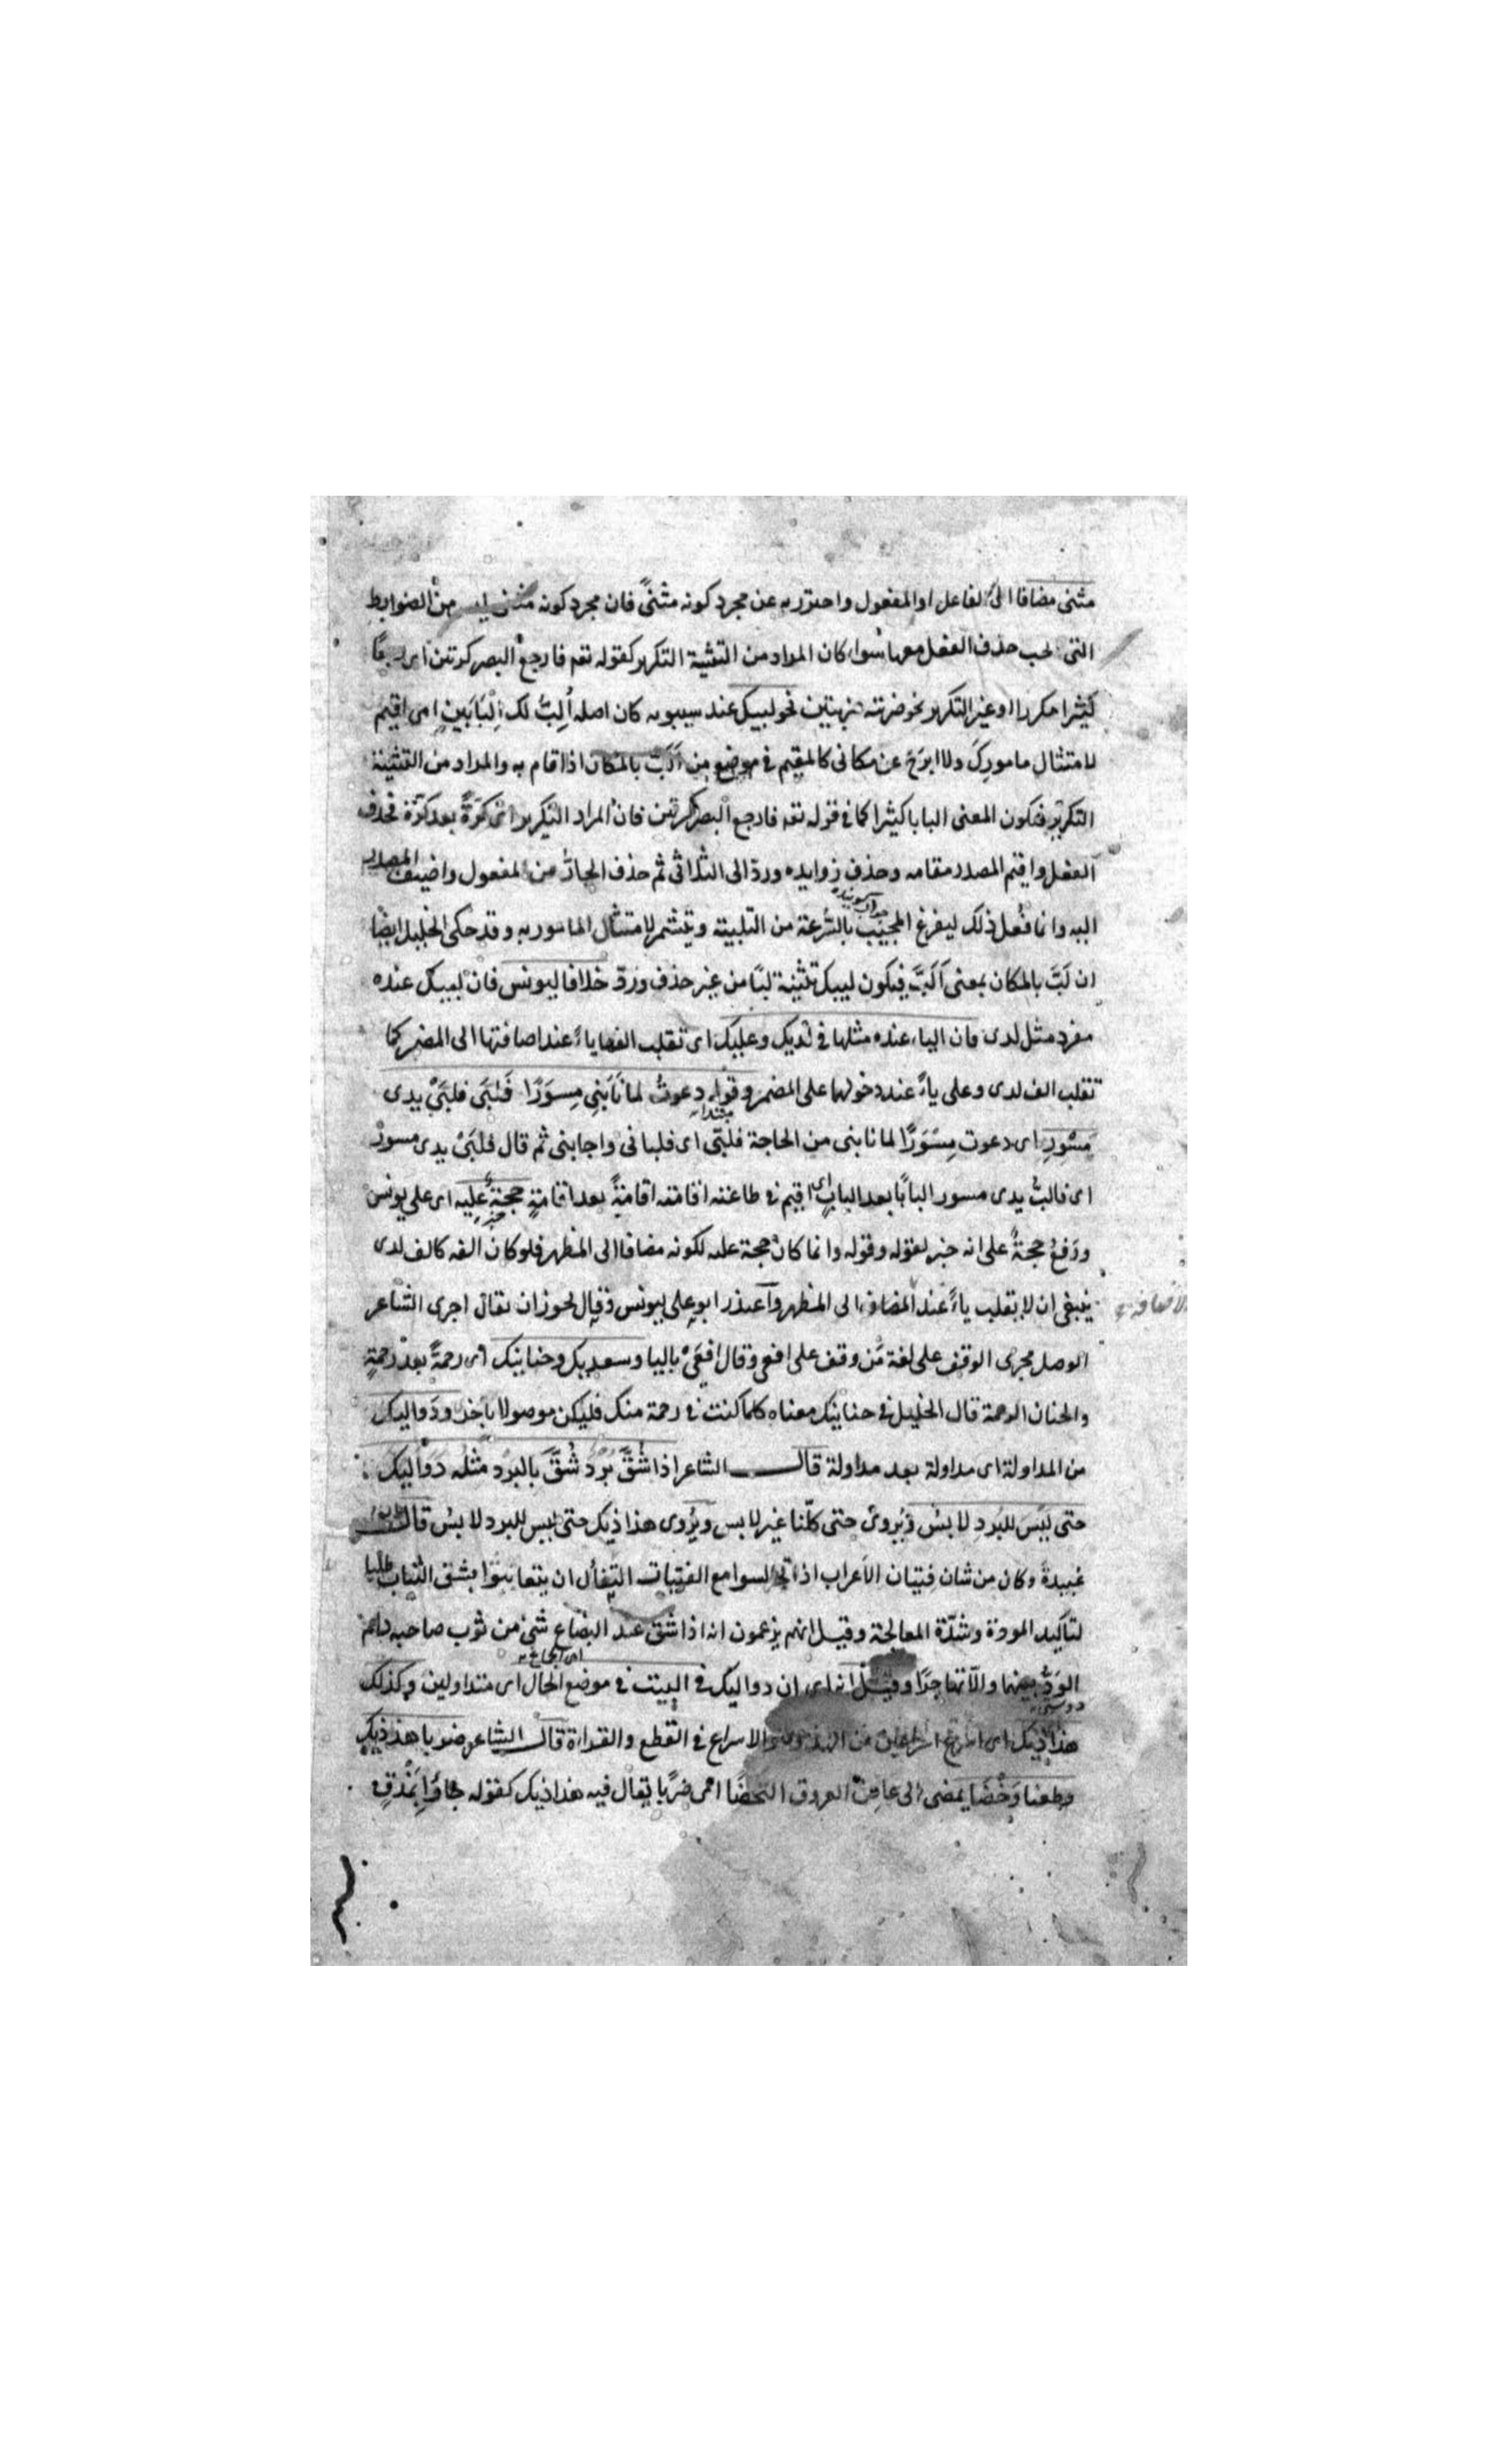 مثنى مضافا الى الفاعل او المفعول واحترز به عن مجرد كونه مثنىً فان مجرد كونه مثنى ليس من الضوابط
التى يجب حذف الفعل معها سواء كان المراد من التثنية التكرير كقوله تعه فارجع البصر كرتين اى رجعًا
كثيرا مكررا او غير التكرير نحو ضربته ضربتين نحو لبيك عند سيبويه كان اصله أُلِبُّ لك اِلْبَابَينِ اى اقيم
لامتثال مامورِكَ ولا ابرَحُ عن مكانى كالمقيم فى موضع من اَلَبَّ بالمكان اذا اقام به والمراد من التثنية
التكرير فيكون المعنى البابا كثيرا كما فى قوله تعه فارجع البصر كرتين فان المراد التكرير اى كرّةً بعد كرّة فحذف
الفعل واقيم المصدر مقامه وحذف زوايده وردّ الى الثلاثى ثم حذف الجارُّ من المفعول واضيف المصدر
اليه وانما فُعل ذلك ليفرغ المجيب بالسُّرعة من التلبية ويتشمر لامتثال المامور به وقد حكى الخليل ايضًا
ان لَبَّ بالمكان بمعنى اَلَبَّ فيكون لبيك تثنية لبًا من غير حذف وردّ خلافا ليونس فان لبيك عنده
مفرد مثل لدى فان الياء عنده مثلها فى لديك وعليك اى تقلب الفها ياءً عند اضافتها الى المضمر كما
تقلب الف لدى وعلى ياءً عند دخولهما على المضمر وقوله دعوتُ لما نَابَنِى مِسوَرًا فَلَبَّى فلبَّىْ يدى
مِسْوَرِ اى دعوت مِسْوَرًا لما نابنى من الحاجة فلبّى اى فلبانى واجابنى ثم قال فلبَّىْ يدى مسورٍ
اى فالبُّ يدى مسور البابًا بعد البابٍ اى اقيم فى طاعته اقامته اقامةً بعد اقامةٍ حجةٌ عليه اى على يونس
ورَفعُ حجةٌ على انه خبر لقوله وقوله وانما كان حجة عليه لكونه مضافا الى المظهر فلو كان الفه كالف لدى
ينبغى ان لا يقلب ياءً عند المضاف الى المظهر واعتذر ابو على ليونس وقال يجوز ان يقال اجرى الشاعر
الوصل مجرى الوقف على لغة مَن وقف على افعى وقال افعَىْ باليا وسعديك وحنانيك اى رحمةً بعد رحمةٍ
والحنان الرحمة قال الخليل فى حنانيك معناه كلما كنت فى رحمة منك فليكن موصولا باخر ودَواليك
من المداولة اى مداولة بعد مداولة قال الشاعر اذا شُقَّ بُرْدٌ شُقَّ بالبرْد مثلُه دَوَاليك
حتى لَيْسَ للبُردِ لابسُ ويُروى حتى كلّنا غير لابس ويُروى هذا ذيك حتى ليس للبرد لابسُ قال ابو
عبيدة وكان من شان فِتيان الاعراب اذا تجالسوا مع الفتيات التِفأل ان يتعابثوا بشق الثياب طلبا
لتاكيد المودة وشدّة المعالجة وقيل انهم يزعمون انه اذا شق عند البضاع شئ من ثوب صاحبه دام
الوَدُّ بينهما والا تهاجرا وقيل انه اى ان دواليك فى البيت فى موضع الحال اى متداولين وكذلك
هذاذيك اى والاسراع فى القطع والقراءة قال الشاعر ضربا هذذيك
وطعنا وَخْضَا يمضى الى عاصى العروق النَّحضَا اى ضربًا يقال فيه هذاذيك كقوله جاؤا بمَذْقٍ